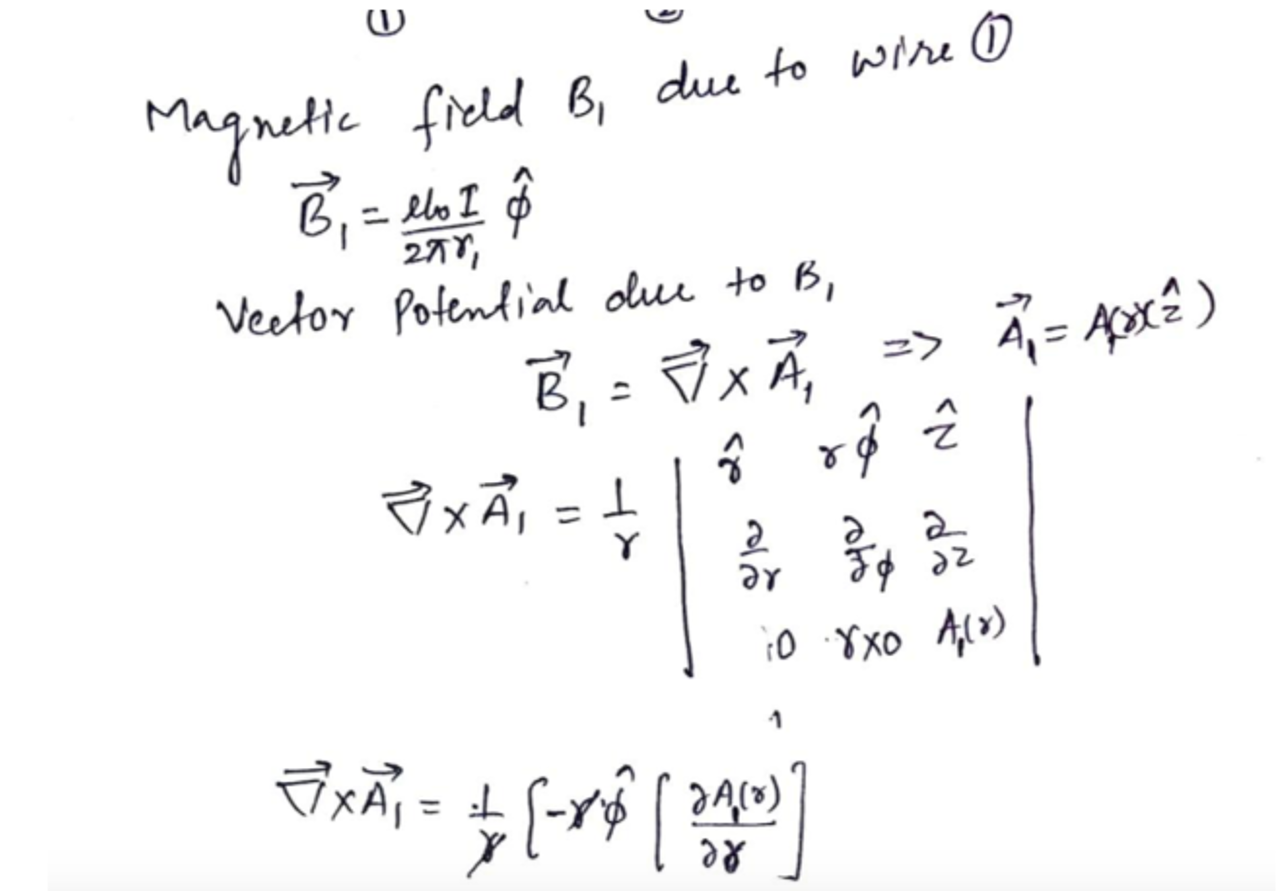 ① ②
Magnetic field B₁ due to wire ①
B⃗₁ = μ₀I / 2πr₁ φ̂
Vector Potential due to B₁
B⃗₁ = ∇⃗ × A⃗₁ => A⃗₁ = A₁(r)(ẑ)
∇⃗ × A⃗₁ = 1/r | r̂ rφ̂ ẑ
∂/∂r ∂/∂φ ∂/∂z
0 r×0 A₁(r) |
∇⃗ × A⃗₁ = 1/r [-rφ̂ [∂A₁(r)/∂r]